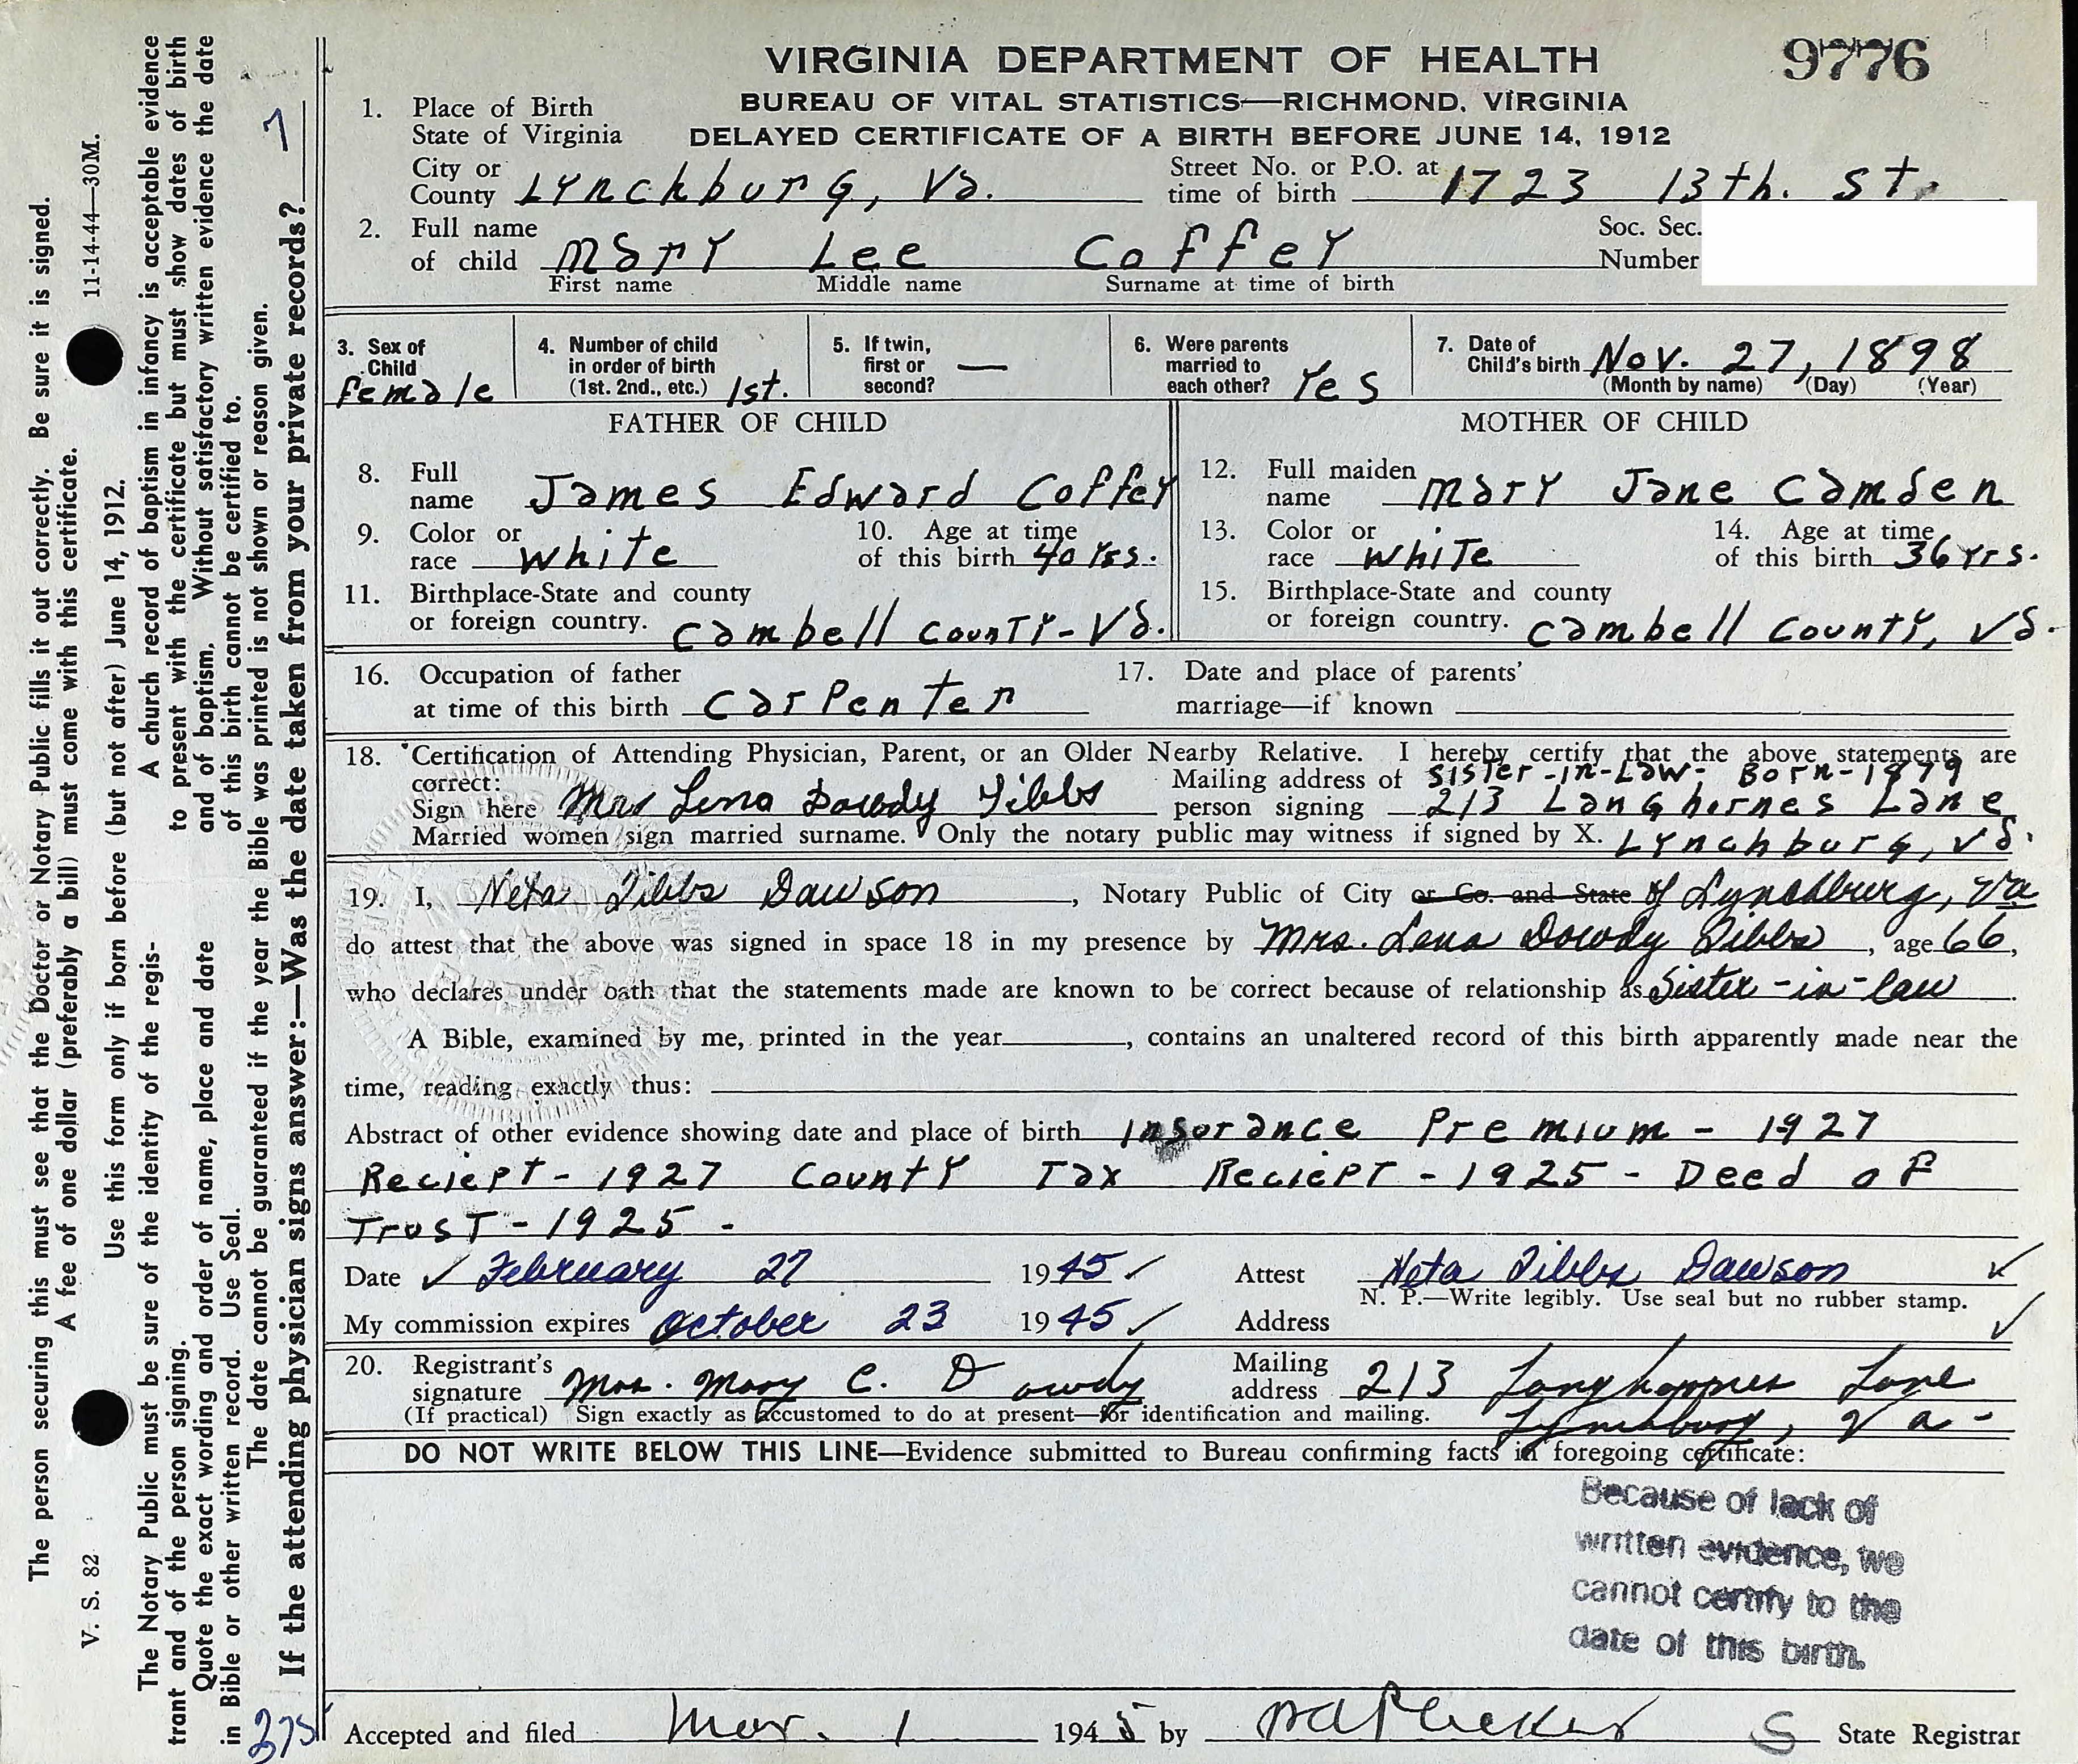 VIRGINIA DEPARTMENT OF HEALTH
9776
BUREAU OF VITAL STATISTICS—RICHMOND, VIRGINIA
DELAYED CERTIFICATE OF A BIRTH BEFORE JUNE 14, 1912
1. Place of Birth
State of Virginia
City or County Lynchburg, Va. Street No. or P.O. at time of birth 1723 13th. St.
2. Full name of child Mary Lee Coffey Soc. Sec. Number
First name Middle name Surname at time of birth
3. Sex of Child Female
4. Number of child in order of birth (1st. 2nd., etc.) 1st.
5. If twin, first or second? —
6. Were parents married to each other? Yes
7. Date of Child's birth Nov. 27, 1898
(Month by name) (Day) (Year)
FATHER OF CHILD
8. Full name James Edward Coffey
9. Color or race White 10. Age at time of this birth 40 Yrs.
11. Birthplace-State and county or foreign country. Cambell County-Va.
MOTHER OF CHILD
12. Full maiden name Mary Jane Camden
13. Color or race White 14. Age at time of this birth 36 Yrs.
15. Birthplace-State and county or foreign country. Cambell County, Va.
16. Occupation of father at time of this birth Carpenter
17. Date and place of parents' marriage—if known
18. Certification of Attending Physician, Parent, or an Older Nearby Relative. I hereby certify that the above statements are
correct:
Sign here Mrs Lena Dowdy Tibbs
Mailing address of person signing Sister-in-Law- Born-1879
213 Langhornes Lane
Married women sign married surname. Only the notary public may witness if signed by X. Lynchburg, Va.
19. I, Neta Tibbs Dawson, Notary Public of City or Co. and State of Lynchburg, Va
do attest that the above was signed in space 18 in my presence by Mrs. Lena Dowdy Tibbs, age 66,
who declares under oath that the statements made are known to be correct because of relationship as Sister-in-law
A Bible, examined by me, printed in the year , contains an unaltered record of this birth apparently made near the
time, reading exactly thus:
Abstract of other evidence showing date and place of birth Insurance Premium - 1927
Reciept - 1927 County Tax Reciept - 1925 - Deed of
Trust - 1925 -
Date ✓ February 27 1945 ✓ Attest Neta Tibbs Dawson ✓
N. P.—Write legibly. Use seal but no rubber stamp.
My commission expires October 23 1945 ✓ Address ✓
20. Registrant's signature Mrs. Mary C. Dowdy Mailing address 213 Langhornes Lane
(If practical) Sign exactly as accustomed to do at present—for identification and mailing. Lynchburg, Va-
DO NOT WRITE BELOW THIS LINE—Evidence submitted to Bureau confirming facts in foregoing certificate:
Because of lack of
written evidence, we
cannot certify to the
date of this birth.
Accepted and filed Mar. 1 1945 by W A Plecker S State Registrar
The person securing this must see that the Doctor or Notary Public fills it out correctly. Be sure it is signed.
A fee of one dollar (preferably a bill) must come with this certificate.
V. S. 82 Use this form only if born before (but not after) June 14, 1912. 11-14-44—30M.
The Notary Public must be sure of the identity of the regis-
trant and of the person signing.
Quote the exact wording and order of name, place and date
in Bible or other written record. Use Seal.
A church record of baptism in infancy is acceptable evidence
to present with the certificate but must show dates of birth
and of baptism. Without satisfactory written evidence the date
of this birth cannot be certified to.
The date cannot be guaranteed if the year the Bible was printed is not shown or reason given.
If the attending physician signs answer:—Was the date taken from your private records? 7
275